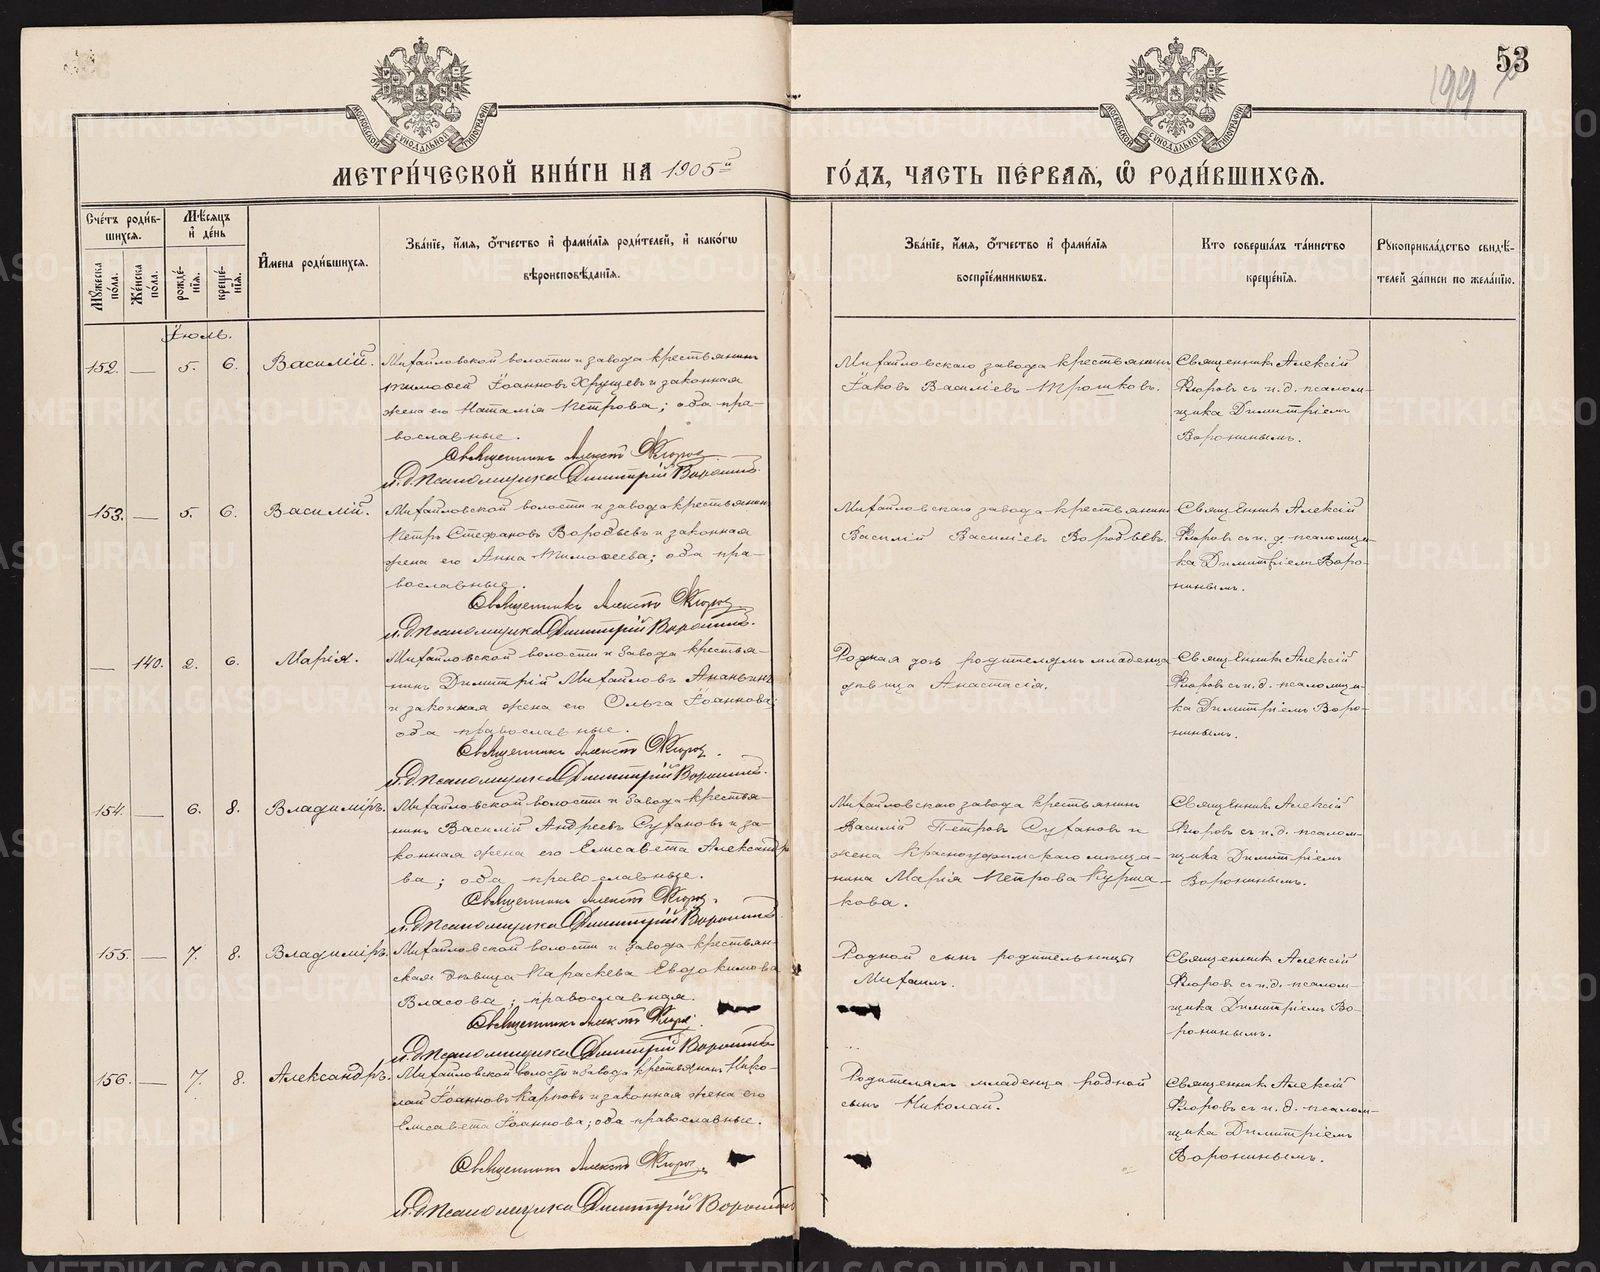 53
199
МОСКОВСКОЙ СѴНОДАЛЬНОЙ ТИПОГРАФІИ
МОСКОВСКОЙ СѴНОДАЛЬНОЙ ТИПОГРАФІИ
МЕТРИ́ЧЕСКОЙ КНИ́ГИ НА 1905й
ГО́ДЪ, ЧАСТЬ ПЕ́РВАѦ, Ѡ РОДИ́ВШИХСѦ.
Сче́тъ роди́вшихсѧ.
Мѣ́сѧцъ и де́нь
Мꙋ́жеска по́ла.
Же́нска по́ла.
рожде́нїѧ.
креще́нїѧ.
И҆мена роди́вшихсѧ.
Зва́нїе, и҆́мѧ, ѻ҆́тчество и҆ фами́лїѧ роди́телей, и҆ како́гѡ
вѣроисповѣ́данїѧ.
Зва́нїе, и҆́мѧ, ѻ҆́тчество и҆ фами́лїѧ
воспрїе́мникѡвъ.
Кто соверша́лъ та́инство
креще́нїѧ.
Рꙋкоприкла́дство свидѣ́-
телей за́писи по жела́нїю.
Іюль.
152. — 5. 6. Василій.
Михайловской волости и завода крестьянинъ
Тимофей Іоанновъ Хрущевъ и законная
жена его Наталія Петрова; оба пра-
вославные.
Священникъ Алексій Флоровъ
и. д. псаломщика Димитрій Воронинъ.
Михайловскаго завода крестьянинъ
Іаковъ Василіевъ Трошковъ.
Священникъ Алексій
Флоровъ съ и. д. псалом-
щика Димитріемъ
Воронинымъ.
153. — 5. 6. Василій.
Михайловской волости и завода крестьянинъ
Петръ Стефановъ Воробьевъ и законная
жена его Анна Тимофеева; оба пра-
вославные.
Священникъ Алексій Флоровъ
и. д. псаломщика Димитрій Воронинъ.
Михайловскаго завода крестьянинъ
Василій Василіевъ Воробьевъ.
Священникъ Алексій
Флоровъ съ и. д. псаломщи-
ка Димитріемъ Воро-
нинымъ.
— 140. 2. 6. Марія.
Михайловской волости и завода крестья-
нинъ Димитрій Михайловъ Ананьинъ
и законная жена его Ольга Іоаннова;
оба православные.
Священникъ Алексій Флоровъ.
и. д. псаломщика Димитрій Воронинъ.
Родная дочь родителямъ младенца
дѣвица Анастасія.
Священникъ Алексій
Флоровъ съ и. д. псаломщи-
ка Димитріемъ Воро-
нинымъ.
154. — 6. 8. Владиміръ.
Михайловской волости и завода крестья-
нинъ Василій Андреевъ Сухановъ и за-
конная жена его Елисавета Александро-
ва; оба православные.
Священникъ Алексій Флоровъ.
и. д. псаломщика Димитрій Воронинъ.
Михайловскаго завода крестьянинъ
Василій Петровъ Сухановъ и
жена Красноуфимскаго мѣща-
нина Марія Петрова Курша-
кова.
Священникъ Алексій
Флоровъ съ и. д. псалом-
щика Димитріемъ
Воронинымъ.
155. — 7. 8. Владиміръ.
Михайловской волости и завода крестьян-
ская дѣвица Параскева Евдокимова
Власова; православная.
Священникъ Алексій Флоровъ.
и. д. псаломщика Димитрій Воронинъ
Родной сынъ родительницы
Михаилъ.
Священникъ Алексій
Флоровъ съ и. д. псалом-
щика Димитріемъ Во-
ронинымъ.
156. — 7. 8. Александръ.
Михайловской волости и завода крестьянинъ Нико-
лай Іоанновъ Карповъ и законная жена его
Елисавета Іоаннова; оба православные.
Священникъ Алексій Флоровъ
и. д. псаломщика Димитрій Воронинъ
Родителямъ младенца родной
сынъ Николай.
Священникъ Алексій
Флоровъ съ и. д. псалом-
щика Димитріемъ
Воронинымъ.
METRIKI.GASO-URAL.RU